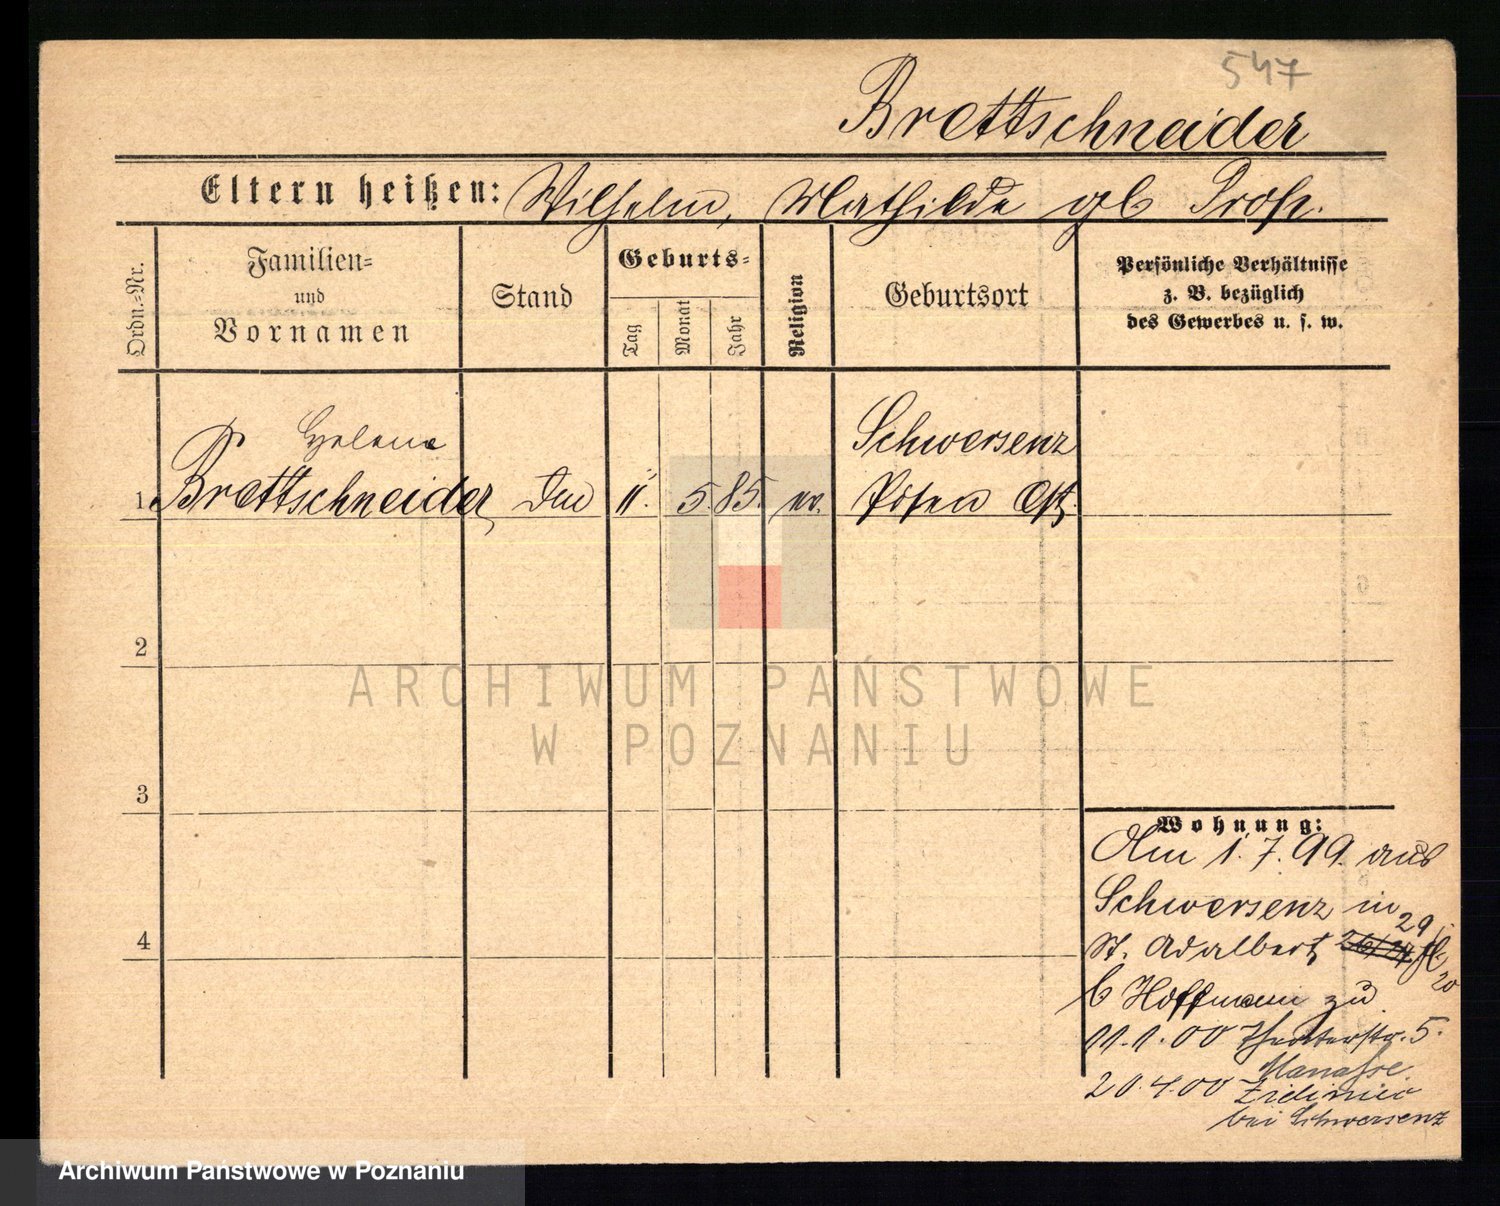 547
Brettschneider
Eltern heißen: Wilhelm, Mathilde gb
Ordn.-Nr.
Familien-
und
Vornamen
Stand
Geburts-
Tag
Monat
Jahr
Religion
Geburtsort
Persönliche Verhältnisse
z. B. bezüglich
des Gewerbes u. s. w.
Helene
Schwersenz
1 Brettschneider 11. 5. 85. Posen Ost
2
3
4
Wohnung:
Am 1. 7. 99. aus
Schwersenz in
29
St. Adalbert
20
b Hoffmann zu
11.1.00 Theaterstr. 5.
Manasse
20.4.00
bei Schwersenz
ARCHIWUM PAŃSTWOWE
W POZNANIU
Archiwum Państwowe w Poznaniu